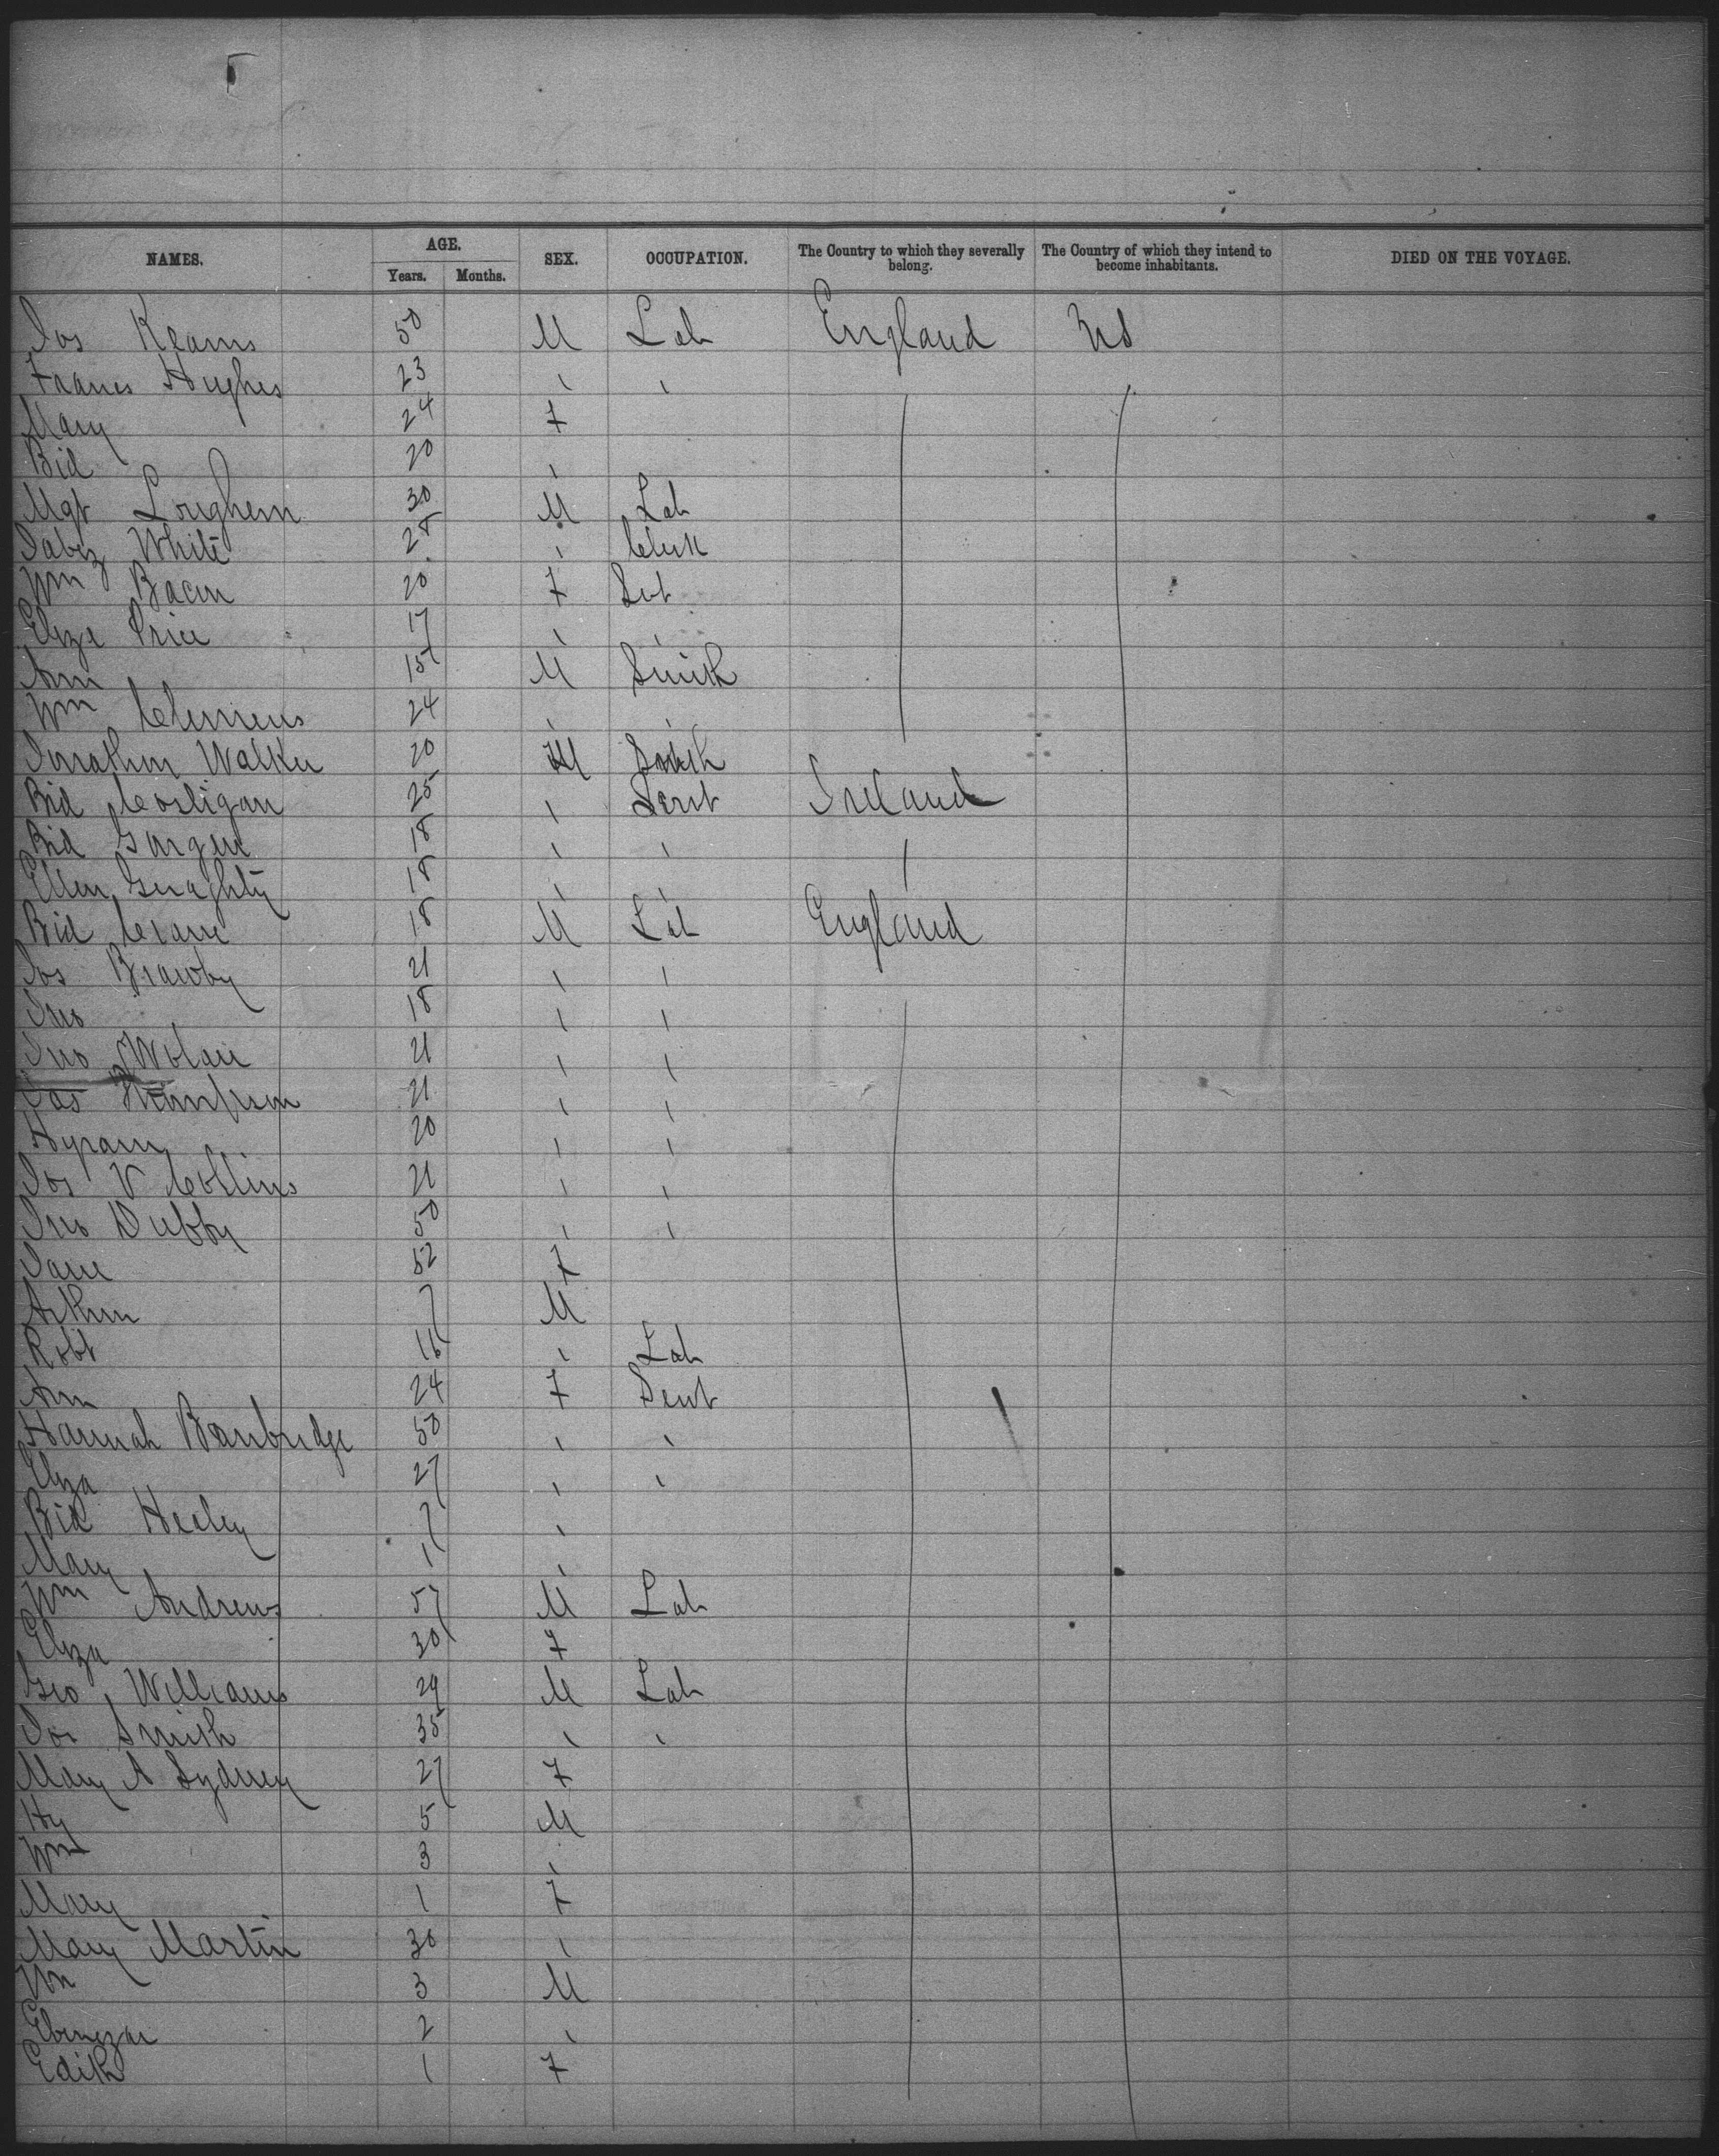 NAMES. AGE. SEX. OCCUPATION. The Country to which they severally belong. The Country of which they intend to become inhabitants. DIED ON THE VOYAGE.
Years. Months.
Jos Kearns 50 M Lab England
Frances Hughes 23 " "
Mary 24 F
Bid 20 "
Mgt Loughern 30 M Lab
Jabez White 28 " Clerk
Wm Bacon 20 F Svt
Eliza Price 17 " "
Ann 15 M Smith
Wm Clemens 24 " "
Jonathon Walker 20 Smith
Bid Costigan 25 " Servt Ireland
Bid 18 " " "
Ellen Geraghty 18 " "
Bid Crane 18 M Lab England
Jos Brawby 21 " "
Jno 18 " "
Jno 21 " "
Jas Thompson 21 " "
Hyram 20 " "
Jos V Collins 21 " "
Jno Dubby 50 " "
Jane 52 F
Arthur 7 M
Robt 16 " Lab
Ann 24 F Servt
Hannah Banbridge 50 " "
Eliza 27 " "
Bid Heeley 7 "
Mary 1 "
Wm Andrews 57 M Lab
Eliza 30 F
Geo Williams 29 M Lab
Jos Smith 35 " "
Mary A Sydney 27 F
Hy 5 M
Wm 3 "
Mary 1 F
Mary Martin 30 "
Wm 3 M
Ebenezar 2 "
Edith 1 F